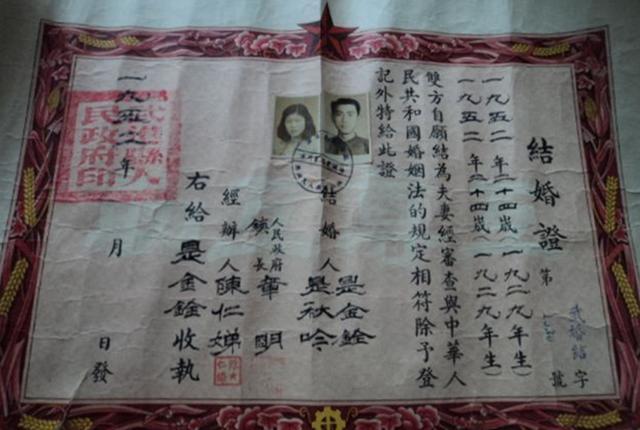 結婚證
武婚結字
第 號
一九五二年二十四歲(一九二九年生)
一九五二年二十四歲(一九二九年生)
雙方自願結為夫妻經審查與中華人
民共和國婚姻法的規定相符除予登
記外特給此證
結婚人
是金銓
是秋吟
人民政府
鎮長
明
經辦人陳仁娣
右給是金銓收執
一九五二年 月 日發
武進縣人
民政府印